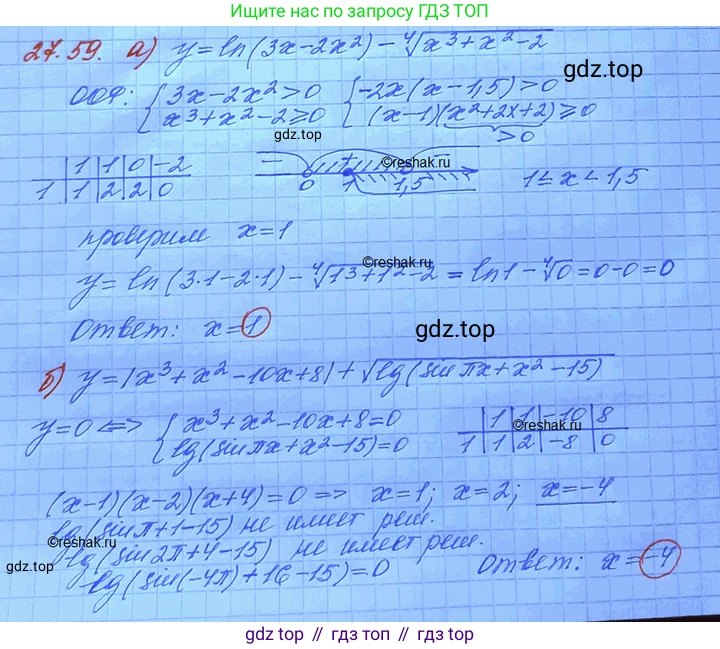 Ищите нас по запросу ГДЗ ТОП
27.59. а) y=ln(3x-2x²) - ⁴√(x³+x²-2)
gdz.top
ООФ: { 3x-2x²>0 { -2x(x-1,5)>0
x³+x²-2≥0 (x-1)(x²+2x+2)≥0
>0
gdz.top
1 1 0 -2
1 1 2 2 0
- + -
©reshak.ru
0 1 1,5
1≤x<1,5
проверим x=1
©reshak.ru
y=ln(3·1-2·1) - ⁴√(1³+1²-2) = ln1 - ⁴√0=0-0=0
Ответ: x=1
gdz.top
б) y=|x³+x²-10x+8|+√(lg(sinπx+x²-15))
y=0 <=> { x³+x²-10x+8=0
lg(sinπx+x²-15)=0
1 1 -10 8
1 1 2 -8 0
©reshak.ru
(x-1)(x-2)(x+4)=0 => x=1; x=2; x=-4
lg(sinπ+1-15) не имеет реш.
©reshak.ru
lg(sin2π+4-15) не имеет реш.
gdz.top
lg(sin(-4π)+16-15)=0
Ответ: x=-4
gdz.top // гдз.топ // gdz.top